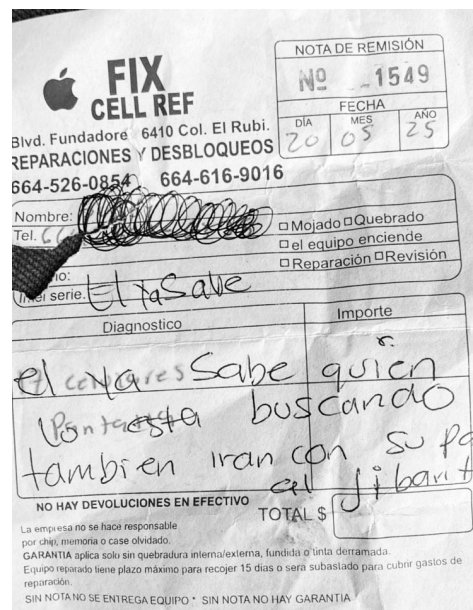 FIX
CELL REF
Blvd. Fundadore 6410 Col. El Rubi.
REPARACIONES Y DESBLOQUEOS
664-526-0854 664-616-9016
NOTA DE REMISIÓN
Nº 1549
FECHA
DÍA MES AÑO
20 05 25
Nombre:
Tel.
Mojado Quebrado
el equipo enciende
Reparación Revisión
serie. El ya Sabe
Diagnostico Importe
el ya Sabe quien
lo esta buscando
tambien iran con su
al jibarit
NO HAY DEVOLUCIONES EN EFECTIVO
TOTAL $
La empresa no se hace responsable
por chip, memoria o case olvidado.
GARANTIA aplica solo sin quebradura interna/externa, fundida o tinta derramada.
Equipo reparado tiene plazo máximo para recojer 15 dias o sera subastado para cubrir gastos de
reparación.
SIN NOTA NO SE ENTREGA EQUIPO * SIN NOTA NO HAY GARANTIA